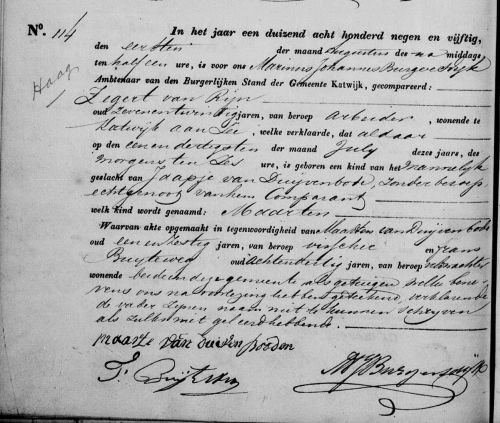 No. 114
In het jaar een duizend acht honderd negen en vijftig,
den eersten der maand Augustus des na middags
ten half een ure, is voor ons Marinus Johannes Burgersdijk
Haag
Ambtenaar van den Burgerlijken Stand der Gemeente Katwijk, gecompareerd:
Zegert van Rijn
oud Zevenentwintig jaren, van beroep arbeider, wonende te
Katwijk aan Zee, welke verklaarde, dat aldaar
op den een en dertigsten der maand July dezes jaars, des
morgens ten zes ure, is geboren een kind van het Mannelijk
geslacht van Jaapje van Duijvenbode, zonder beroep
echtgenoot van hem Comparant
welk kind wordt genaamd: Maarten
Waarvan akte opgemaakt in tegenwoordigheid van Maarten van Duijvenbode
oud een en zestig jaren, van beroep visscher en Frans
Buyteweg oud achtendertig jaren, van beroep
wonende beiden dezer gemeente als getuigen, welke bene-
vens ons na voorlezing hebben geteekend, verklarende
de vader zijnen naam niet te kunnen schrijven
als zulks niet geleerd hebbende.
maarte van duiven booden
F. M J Burgersdijk